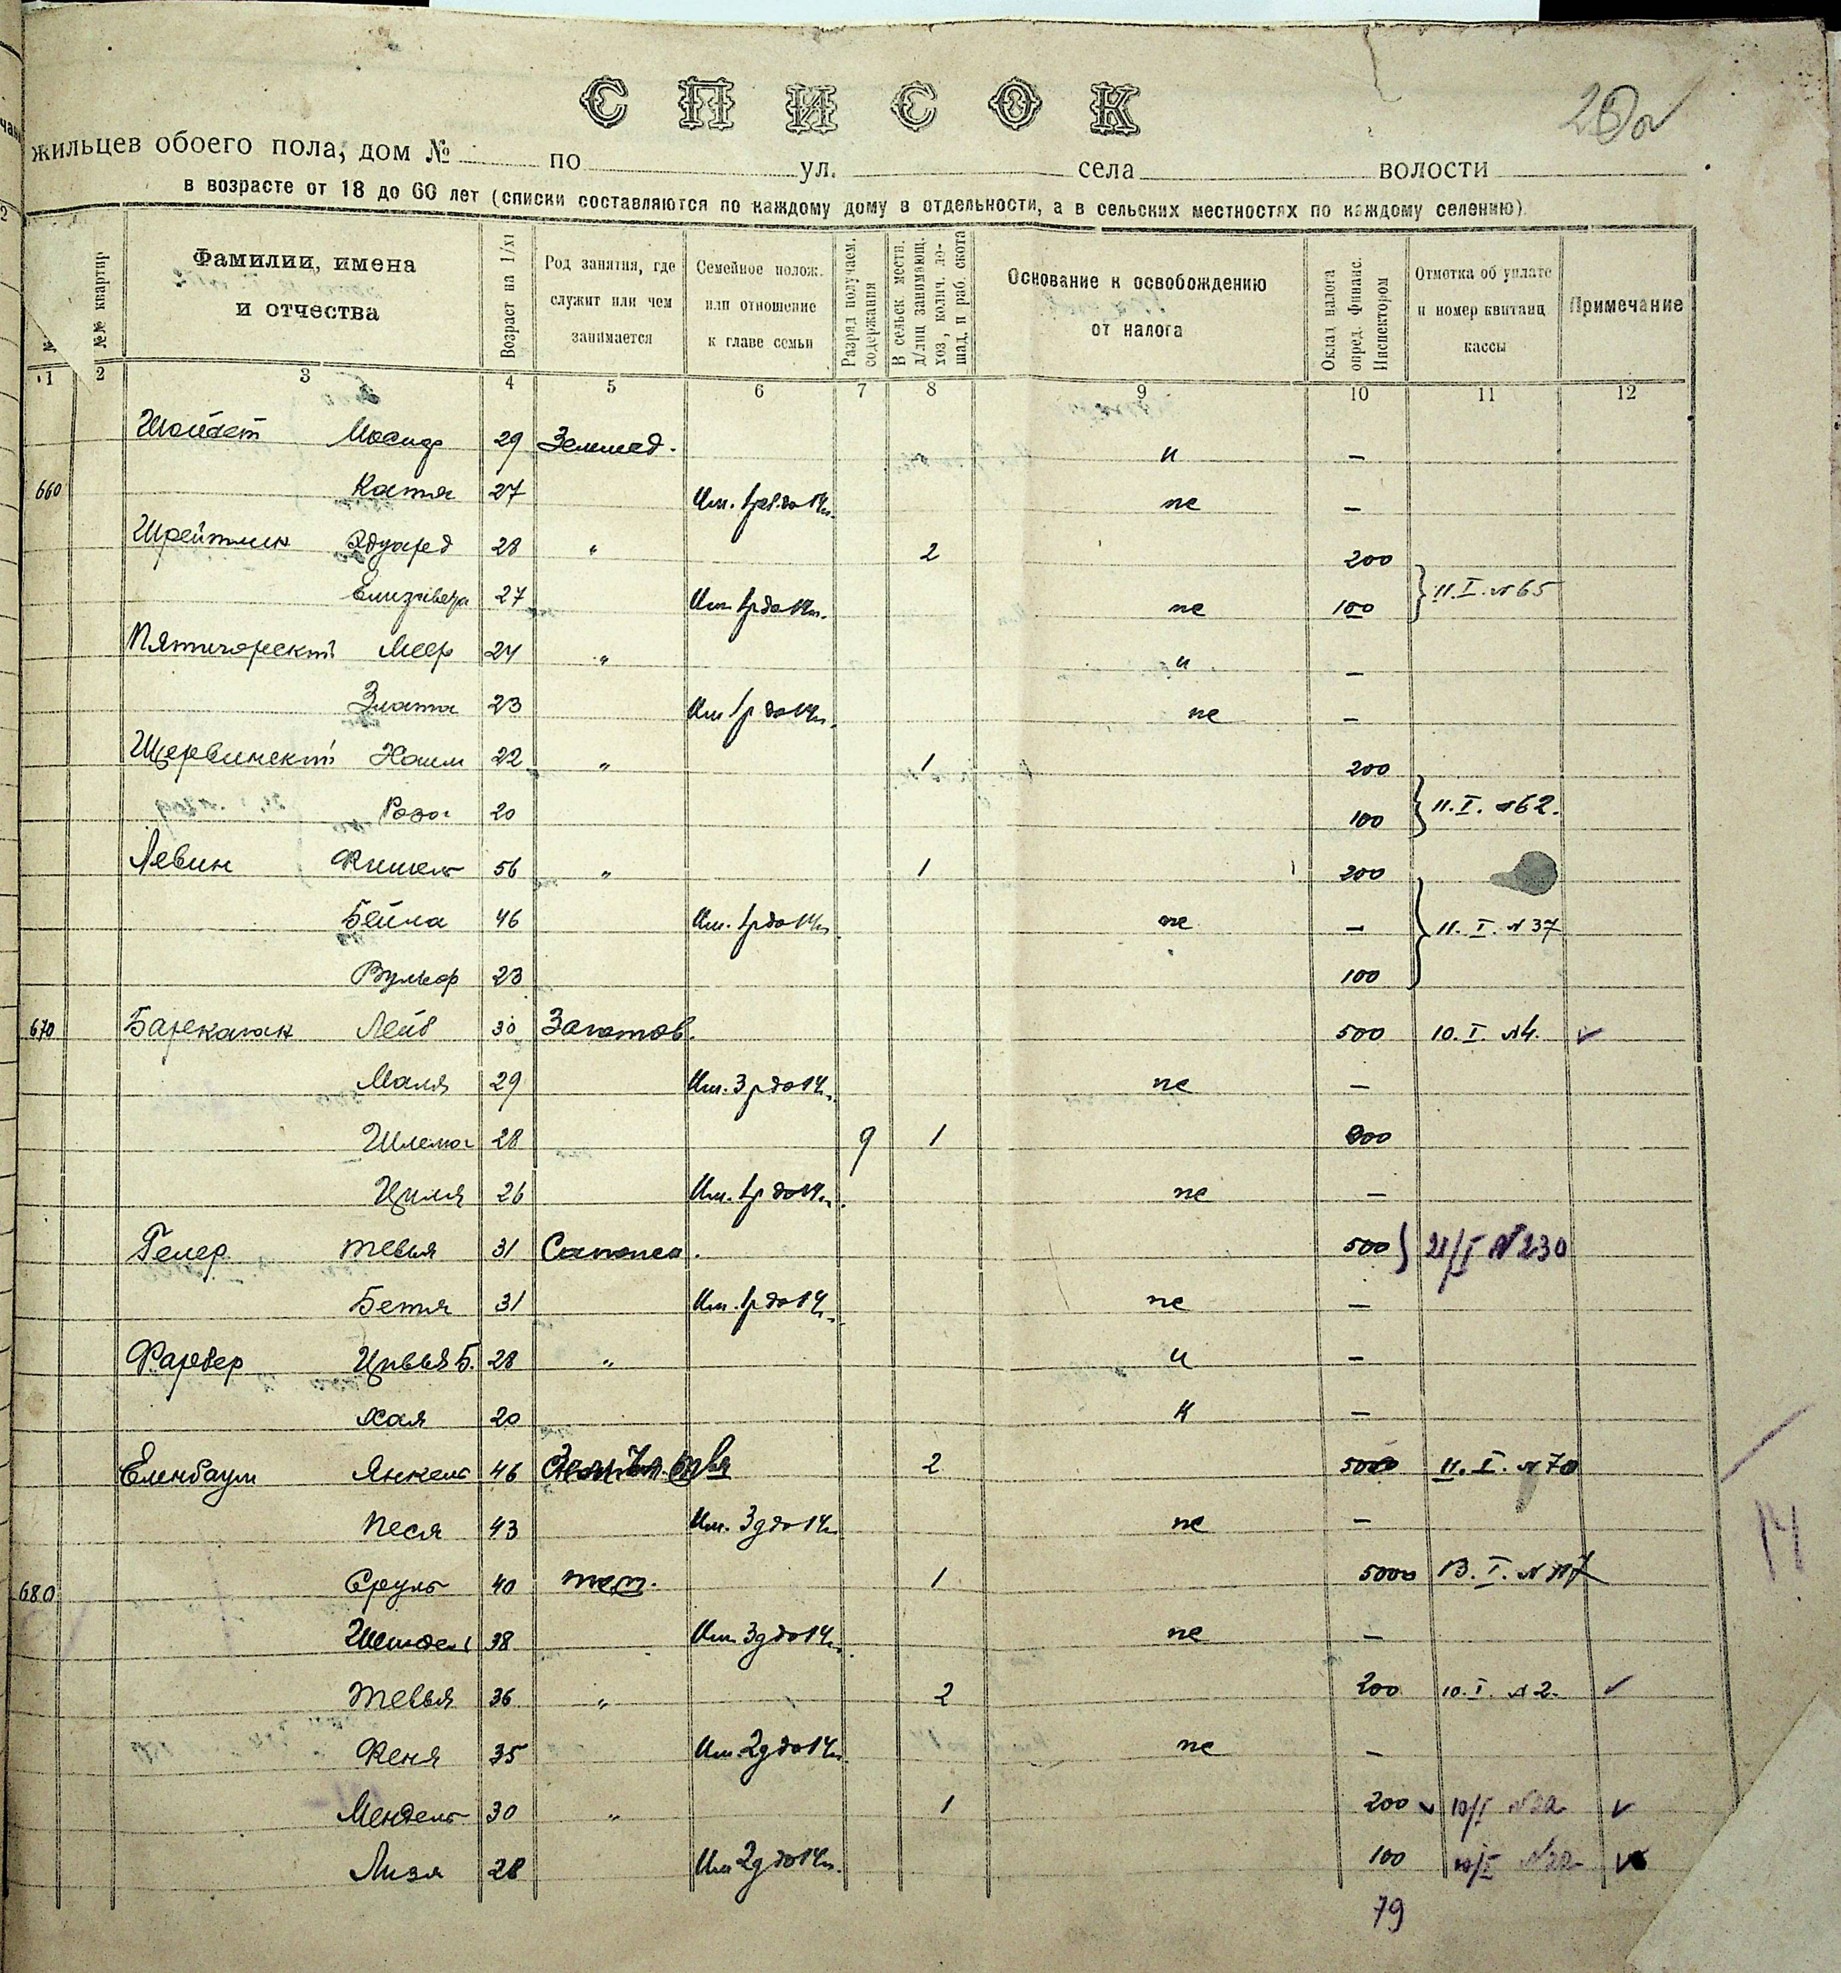 СПИСОК
20а
жильцев обоего пола, дом № по ул. села волости
в возрасте от 18 до 60 лет (списки составляются по каждому дому в отдельности, а в сельских местностях по каждому селению)
№№ квартир
Фамилии, имена и отчества
Возраст на 1/XI
Род занятия, где служит или чем занимается
Семейное полож. или отношение к главе семьи
Разряд получаем. содержания
В сельск. местн. д/лиц занимающ. хоз., колич. лошад. и раб. скота
Основание к освобождению от налога
Оклад налога опред. Финанс. Инспектором
Отметка об уплате и номер квитанц кассы
Примечание
1 2 3 4 5 6 7 8 9 10 11 12
29 Землед. и —
660 Катя 27 Им. 1 реб. до 14 л. пе —
Шрейтман Эдуард 28 " 2 200
Елизавета 27 Им 1 р до 14 л. пе 100 11. I. № 65
Пятигорский Меер 24 " и —
Злата 23 Им 1 р до 14 л. пе —
Щербинский Хаим 22 " 1 200
Роза 20 100 11. I. № 62.
Левин Фишель 56 " 1 200
Бейла 46 Им. 1 р до 14 л. пе — 11. I. № 37
Вульф 23 100
670 Лейб 30 Заготов. 500 10. I. № 4. ✓
Маля 29 Им. 3 р до 14 л. пе —
Шлема 28 9 1 200
Циля 26 Им. 1 р до 14 л. пе —
Гелер Тевья 31 Сапожн. 500 21/I № 230
Бетя 31 Им. 1 р до 14 л. пе —
Фарбер Цивья Б. 28 " и —
Хая 20 и —
Еленбаум Янкель 46 2 5000 11. I. № 70
Песя 43 Им. 3 д до 14 л. пе —
680 Сруль 40 1 5000 13. I. №
Шейндел 38 Им 3 д до 14 л. пе —
Тевья 36 " 2 200 10. I. № 2. ✓
Феня 35 Им 2 д до 14 л. пе —
Мендель 30 " 1 200 ✓ 10/I № 22 ✓
Лиза 28 Им 2 д до 14 л. 100 10/I № 22 ✓
14
79